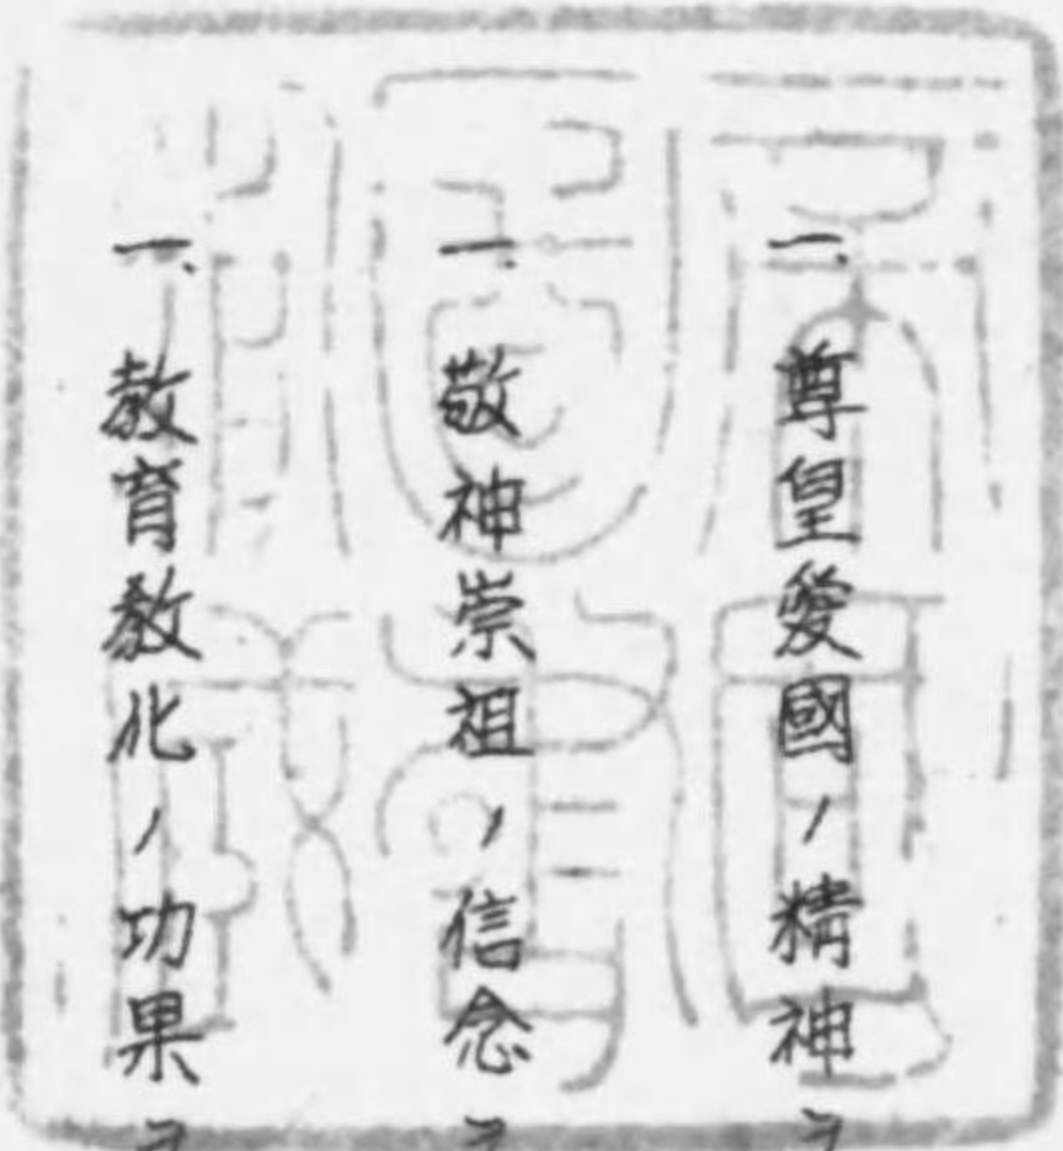 一、尊皇愛國ノ精神ヲ
一、敬神崇祖ノ信念ヲ
一、教育教化ノ功果ヲ